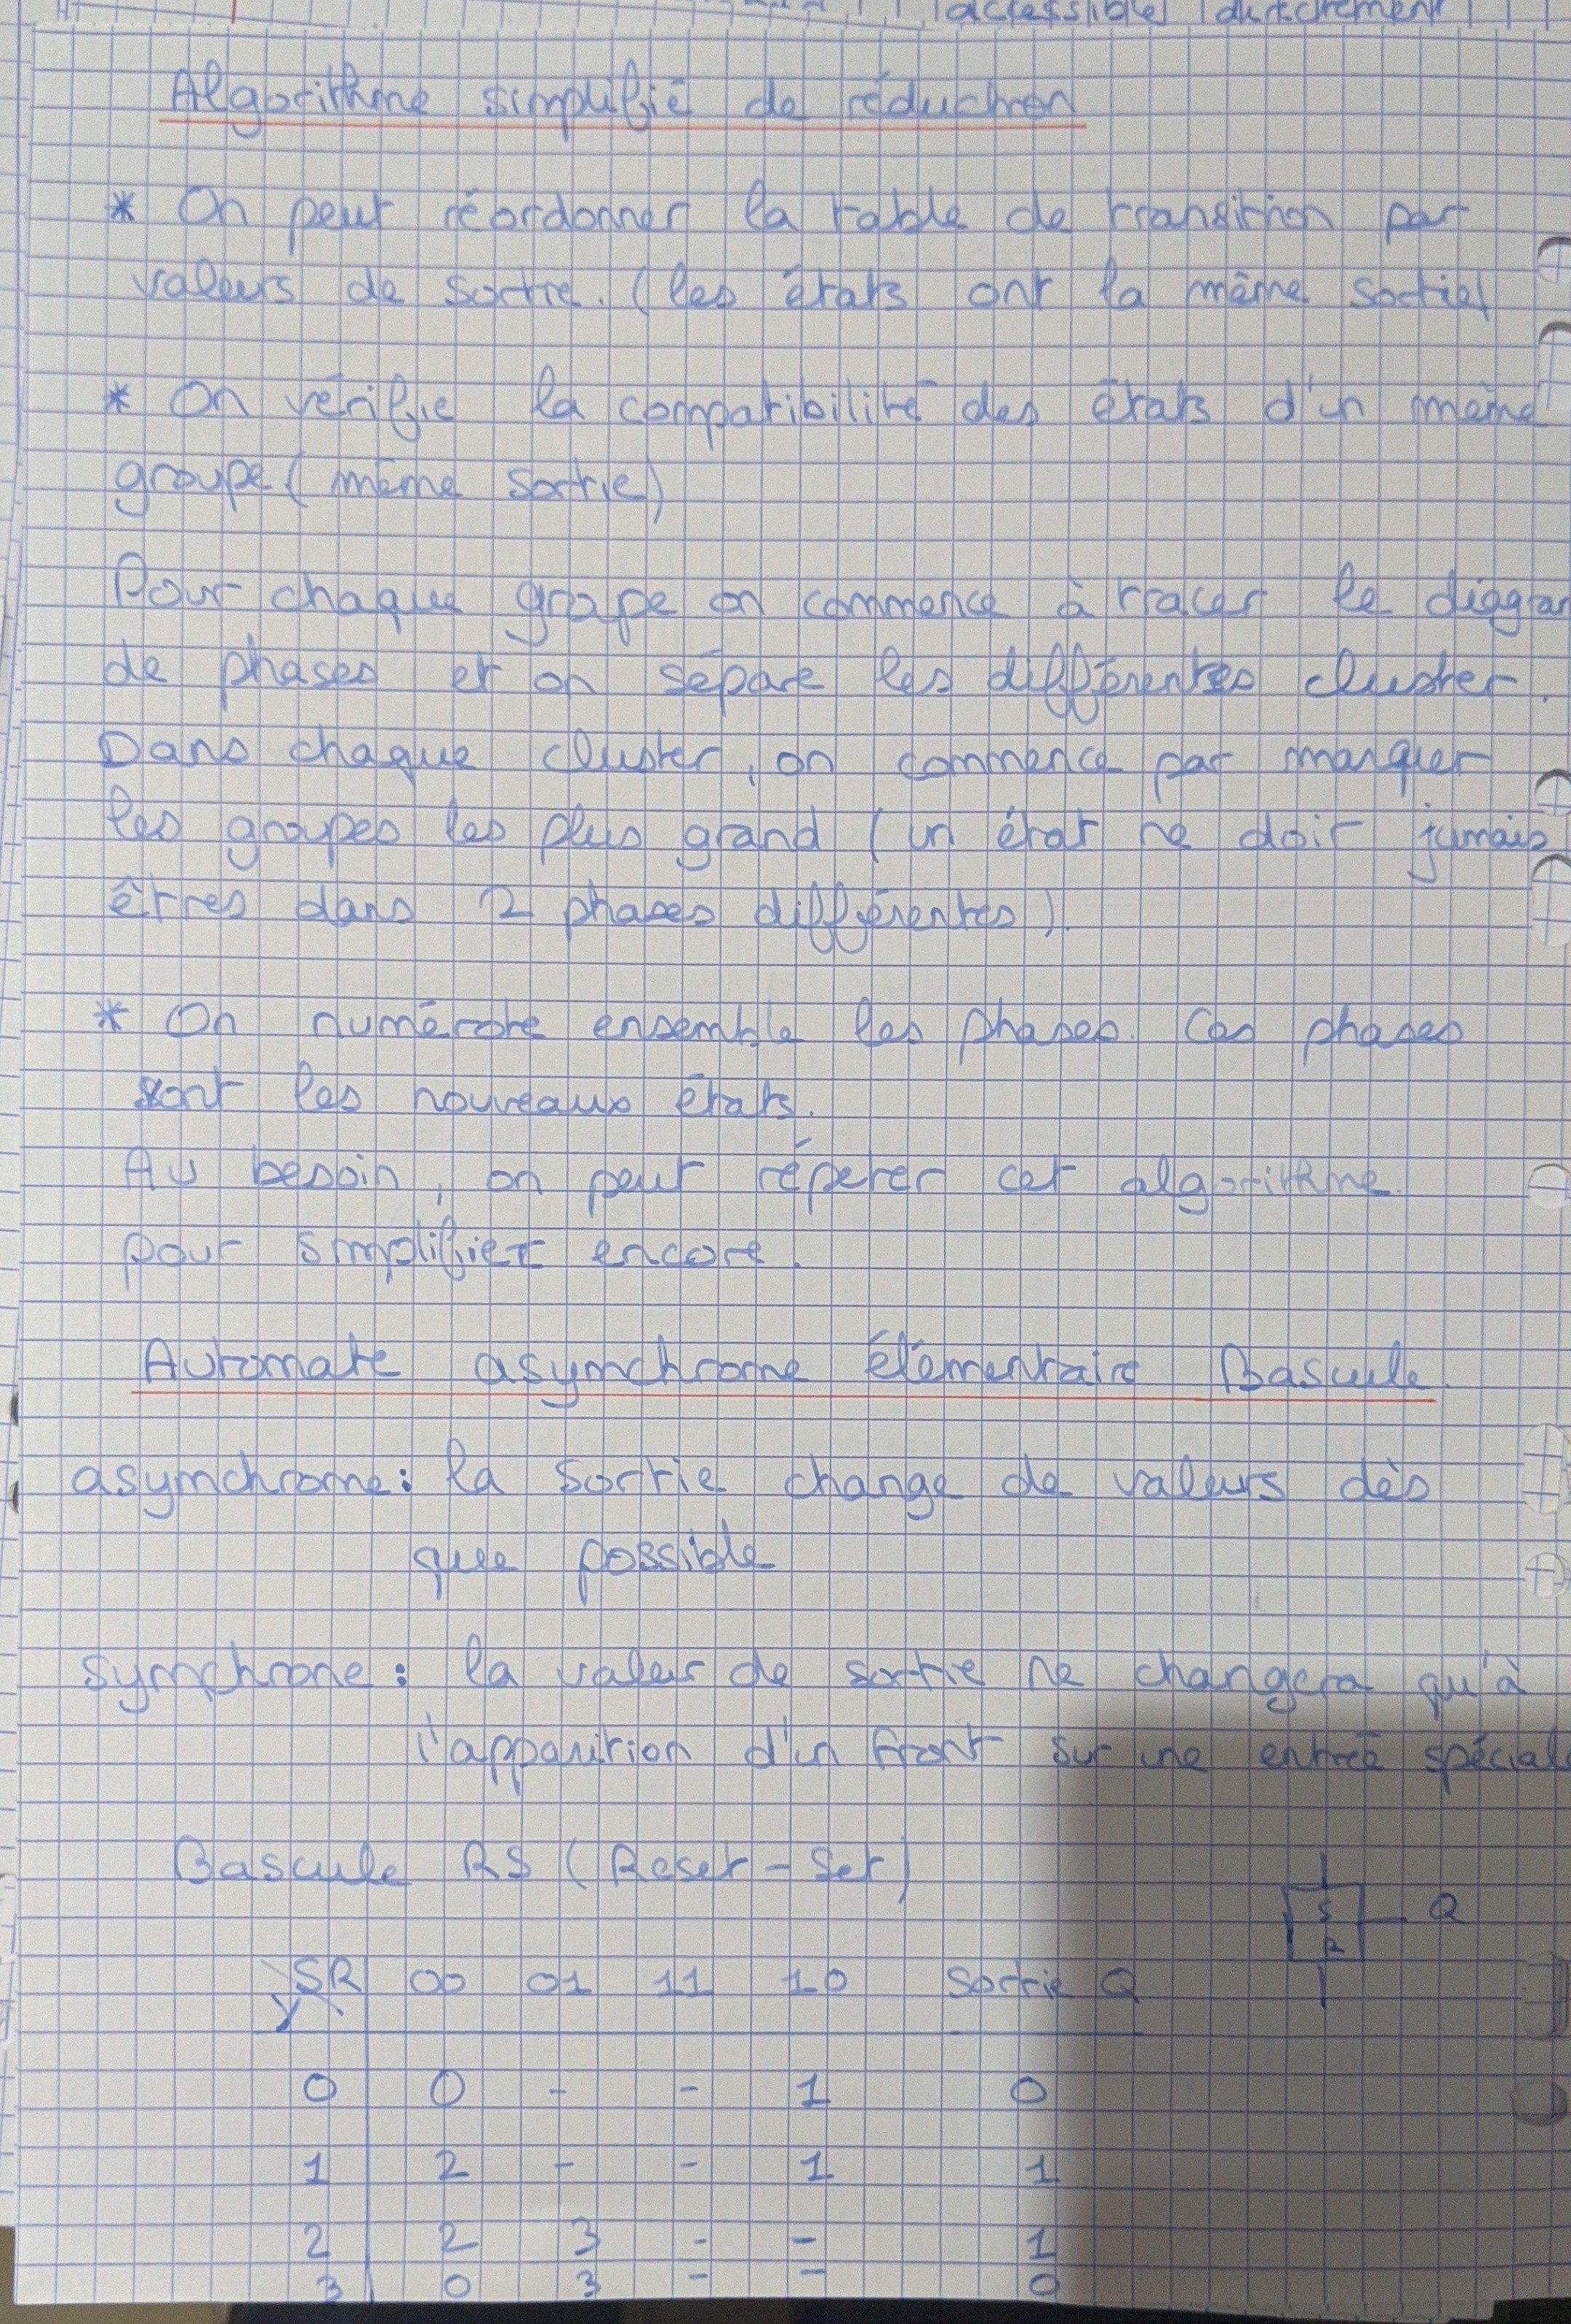 accessible directement
Algorithme simplifié de réduction
* On peut réordonner la table de transition par
valeurs de sortie. (les états ont la même sortie)
* On vérifie la compatibilité des états d'un même
groupe (même sortie)
Pour chaque groupe on commence à tracer le diagram
de phases et on sépare les différentes cluster.
Dans chaque cluster, on commence par marquer
les groupes les plus grand (un état ne doit jamais
êtres dans 2 phases différentes).
* On numérote ensemble les phases. Ces phases
sont les nouveaux états.
Au besoin, on peut répeter cet algorithme.
pour simplifier encore.
Automate asymchrome élémentaire Bascule.
asymchrome: la sortie change de valeurs dès
que possible
symchrone: la valeur de sortie ne changera qu'à
l'apparition d'un front sur une entrée spécial
Bascule RS (Reset - Set)
S
R
Q
SR 00 01 11 10 Sortie Q
y
0 0 - - 1 0
1 2 - - 1 1
2 2 3 - - 1
3 0 3 - - 0